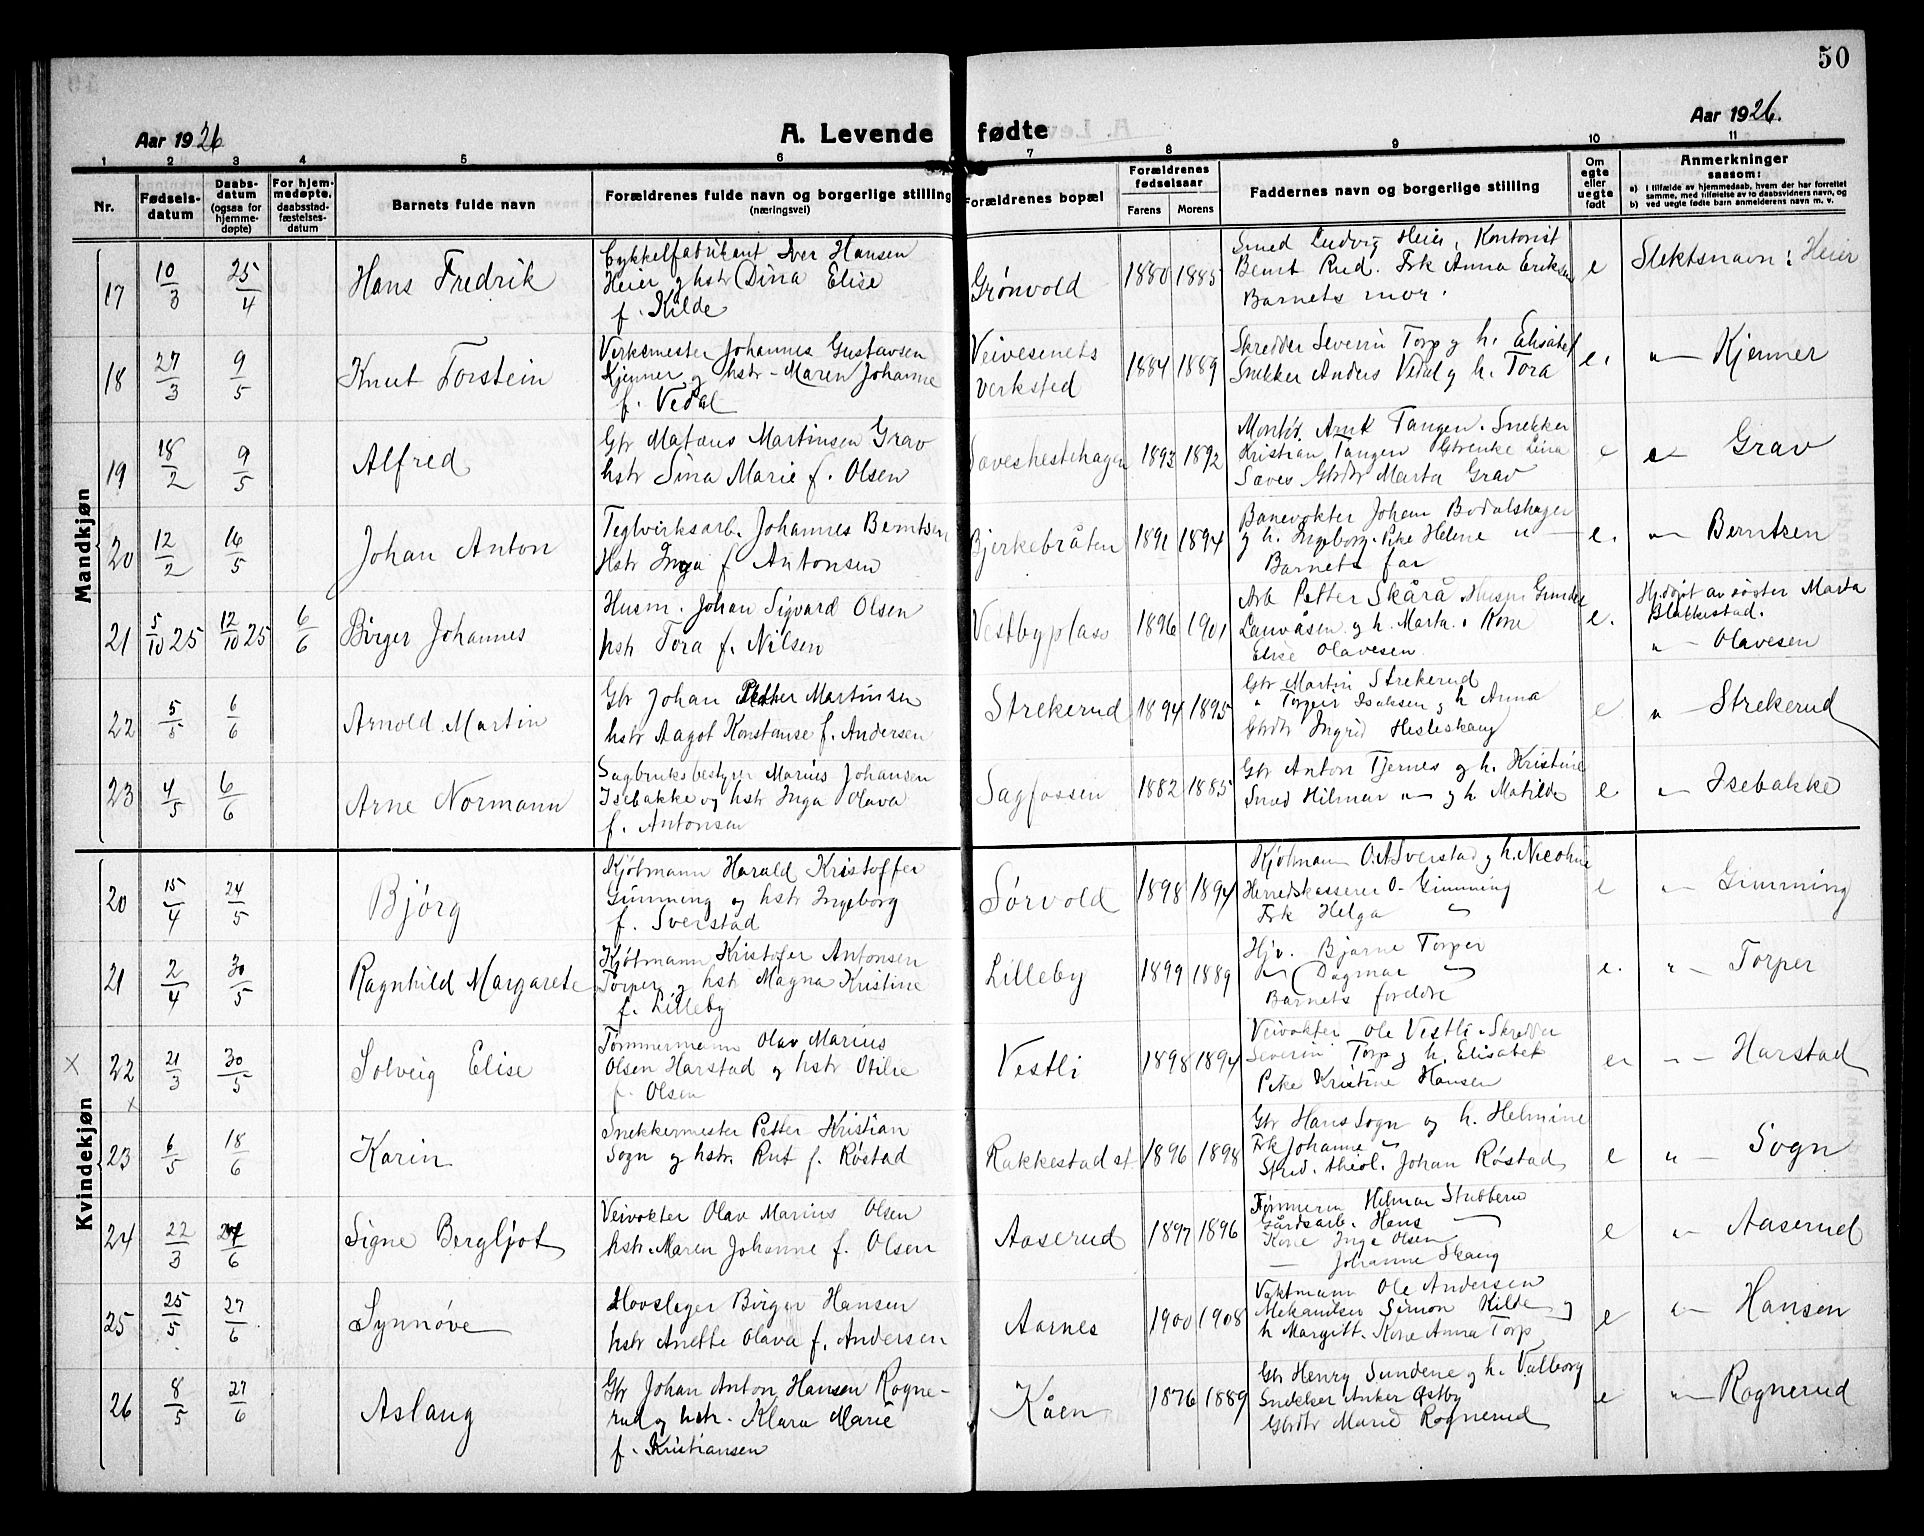 50
Aar 1926
A. Levende fødte
Aar 1926.
1 2 3 4 5 6 7 8 9 10 11
Nr.
Fødsels-
datum
Daabs-
datum
(ogsaa for
hjemme-
døpte)
For hjem-
medøpte,
daabsstad-
fæstelses-
datum
Barnets fulde navn
Forældrenes fulde navn og borgerlige stilling
(næringsvei)
Forældrenes bopæl
Forældrenes
fødselsaar
Farens Morens
Faddernes navn og borgerlige stilling
Om
egte
eller
uegte
født
Anmerkninger
saasom:
a) i tilfælde av hjemmedaab, hvem der har forrettet
samme, med tilføielse av to daabsvidners navn, og
b) ved uegte fødte barn anmelderens navn m. v.
Mandkjøn
17 10/3 25/4 Hans Fredrik
Cykkelfabrikant Iver Hansen
Heier og hstr Dina Elise
f. Kilde
Grønvold 1880 1885
Smed Ludvig Heier, Kontorist
Bernt Rud. Frk Anna Eriksen
Barnets mor.
e Slektsnavn: Heier
18 27/3 9/5 Knut Torstein
Verksmester Johannes Gustavsen
Kjenner og hstr - Maren Johanne
f. Vedal
Veivesenets
verksted
1884 1889
Skredder Severin Torp og h. Elisabet
Snekker Anders Vedal og h. Tora
e. " — Kjenner
19 18/2 9/5 Alfred
Gbr Mataus Martinsen Grav
hstr Sina Marie f. Olsen
Saveshestehagen 1893 1892
Montør Arnt Tangen. Snekker
Kristian Tangen Gbrenke Lina
Saves Gbrdtr Marta Grav
e " — Grav
20 12/2 16/5 Johan Anton
Teglverksarb. Johannes Berntsen
Hstr Inga f Antonsen
Bjerkebråten 1891 1894
Banevokter Johan Bodalshagen
og h. Ingeborg. Pike Helene " —
Barnets far
e. " — Berntzen
21 5/10 25 12/10 25 6/6 Birger Johannes
Husm. Johan Sigvard Olsen
hstr Tora f. Nilsen
Vestbyplass 1896 1901
Arb Petter Skårå
og h. Marta. Kone
Elise Olavesen
e. Hj.døpt av søster Marta
Blakkestad.
" — Olavesen
22 5/5 6/6 Arnold Martin
Gbr Johan Petter Martinsen
hstr Aagot Konstanse f. Andersen
Strekerud 1894 1895
Gbr Martin Strekerud
" Torgeir Isaksen og h Anna
Gbrdtr Ingrid Hesleskaug
e " — Strekerud
23 4/5 6/6 Arne Normann
Sagbruksbestyrer Marius Johansen
Isebakke og hstr Inga Olava
f. Antonsen
Sagfossen 1882 1885
Gbr Anton Tjernes og h. Kristine
Smed Hilmar " — og h Matilde
e " — Isebakke
Kvindekjøn
20 15/4 24/5 Bjørg
Kjøbmann Harald Kristoffer
Gimming og hstr Ingeborg
f. Sverstad
Sørvold 1898 1894
Kjøbmann O.A Sverstad og h. Nicoline
Herredskasserer O- Gimming
Frk Helga "
e " — Gimming
21 2/4 30/5 Ragnhild Margarete
Kjøbmann Kristofer Antonsen
Torper og hstr Magna Kristine
f. Lilleby
Lilleby 1899 1889
Hjv. Bjarne Torper
" Dagmar "
Barnets foreldre
e. " — Torper
× 22 21/3 30/5 Solveig Elise
×
Tømmermann Olav Marius
Olsen Harstad og hstr Otilie
f. Olsen
Vestli 1898 1894
Veivokter Ole Vestli. Skredder
Severin Torp og h. Elisabet
Pike Kristine Hansen
e " — Harstad
23 6/5 18/6 Karin
Snekkermester Petter Kristian
Sogn og hstr. Rut f. Røstad
Rakkestad st. 1896 1898
Gbr Hans Sogn og h. Helmine
Frk Johanne "
Stud. theol. Johan Røstad
e " — Sogn
24 22/3 /6 Signe Bergljot
Veivokter Olav Marius Olsen
hstr. Maren Johanne f. Olsen
Aaserud 1897 1896
Tømmerm Hilmar Stubberud
Gårdsarb. Hans —
Kone Inga Olsen
— Johanne Skaug
e " — Aaserud
25 25/5 27/6 Synnøve
Hovslager Birger Hansen
hstr Anette Olava f. Andersen
Aarnes 1900 1908
Vaktmann Ole Andersen
Mekaniker Simon Kilde og
h Margitt. Kone Anna Torp
e " — Hansen
26 8/5 27/6 Aslaug
Gbr Johan Anton Hansen Rogne-
rud og hstr. Klara Marie
f. Kristiansen
Kåen 1876 1889
Gbr Henry Sundene og h. Valborg
Snekker Anker Østby
Gbrdtr Marie Rognerud
e " — Rognerud